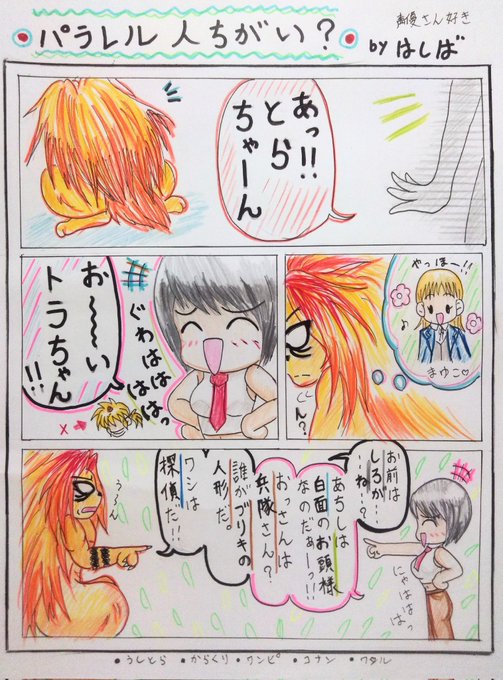 声優さん好き
パラレル人ちがい?
by はしば
あっ!!
とら
ちゃーん
お〜〜い
トラちゃん
!!
ぐわはは
ははっ
やっほー!!
♪
まゆこ♡
ん?
お前は
しろが…
…ね…?
あちしは
白面のお頭様
なのだぁーっ!!
おっさんは
兵隊さん?
誰がブリキの
人形だ。
ワシは
探偵だ!!
う〜ん
にゃははっ
は
●うしとら ●からくり ●ワンピ ●コナン ●ワタル